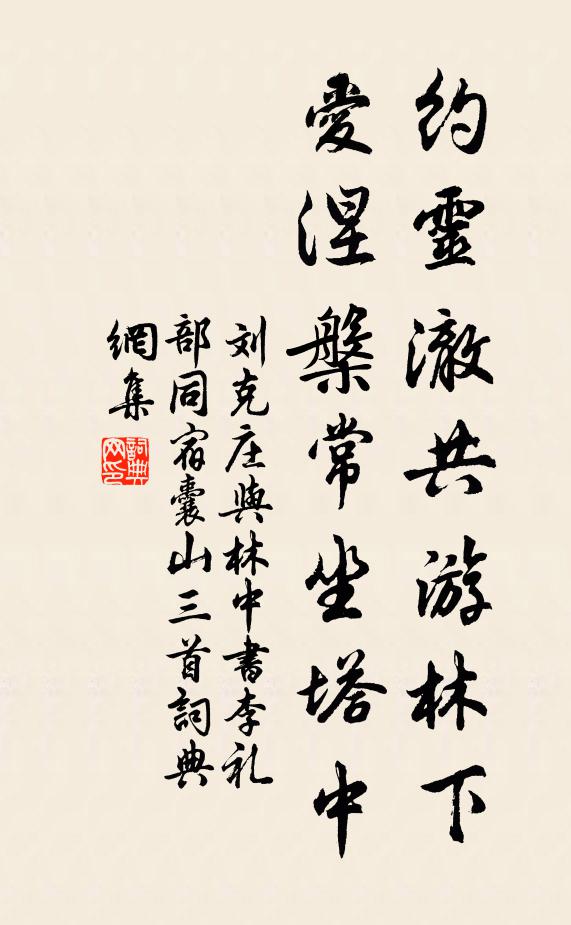 約靈澈共游林下
愛涅槃常坐塔中
刘克庄與林中書李礼
部同宿囊山三首詞典
網集
詞典
网印